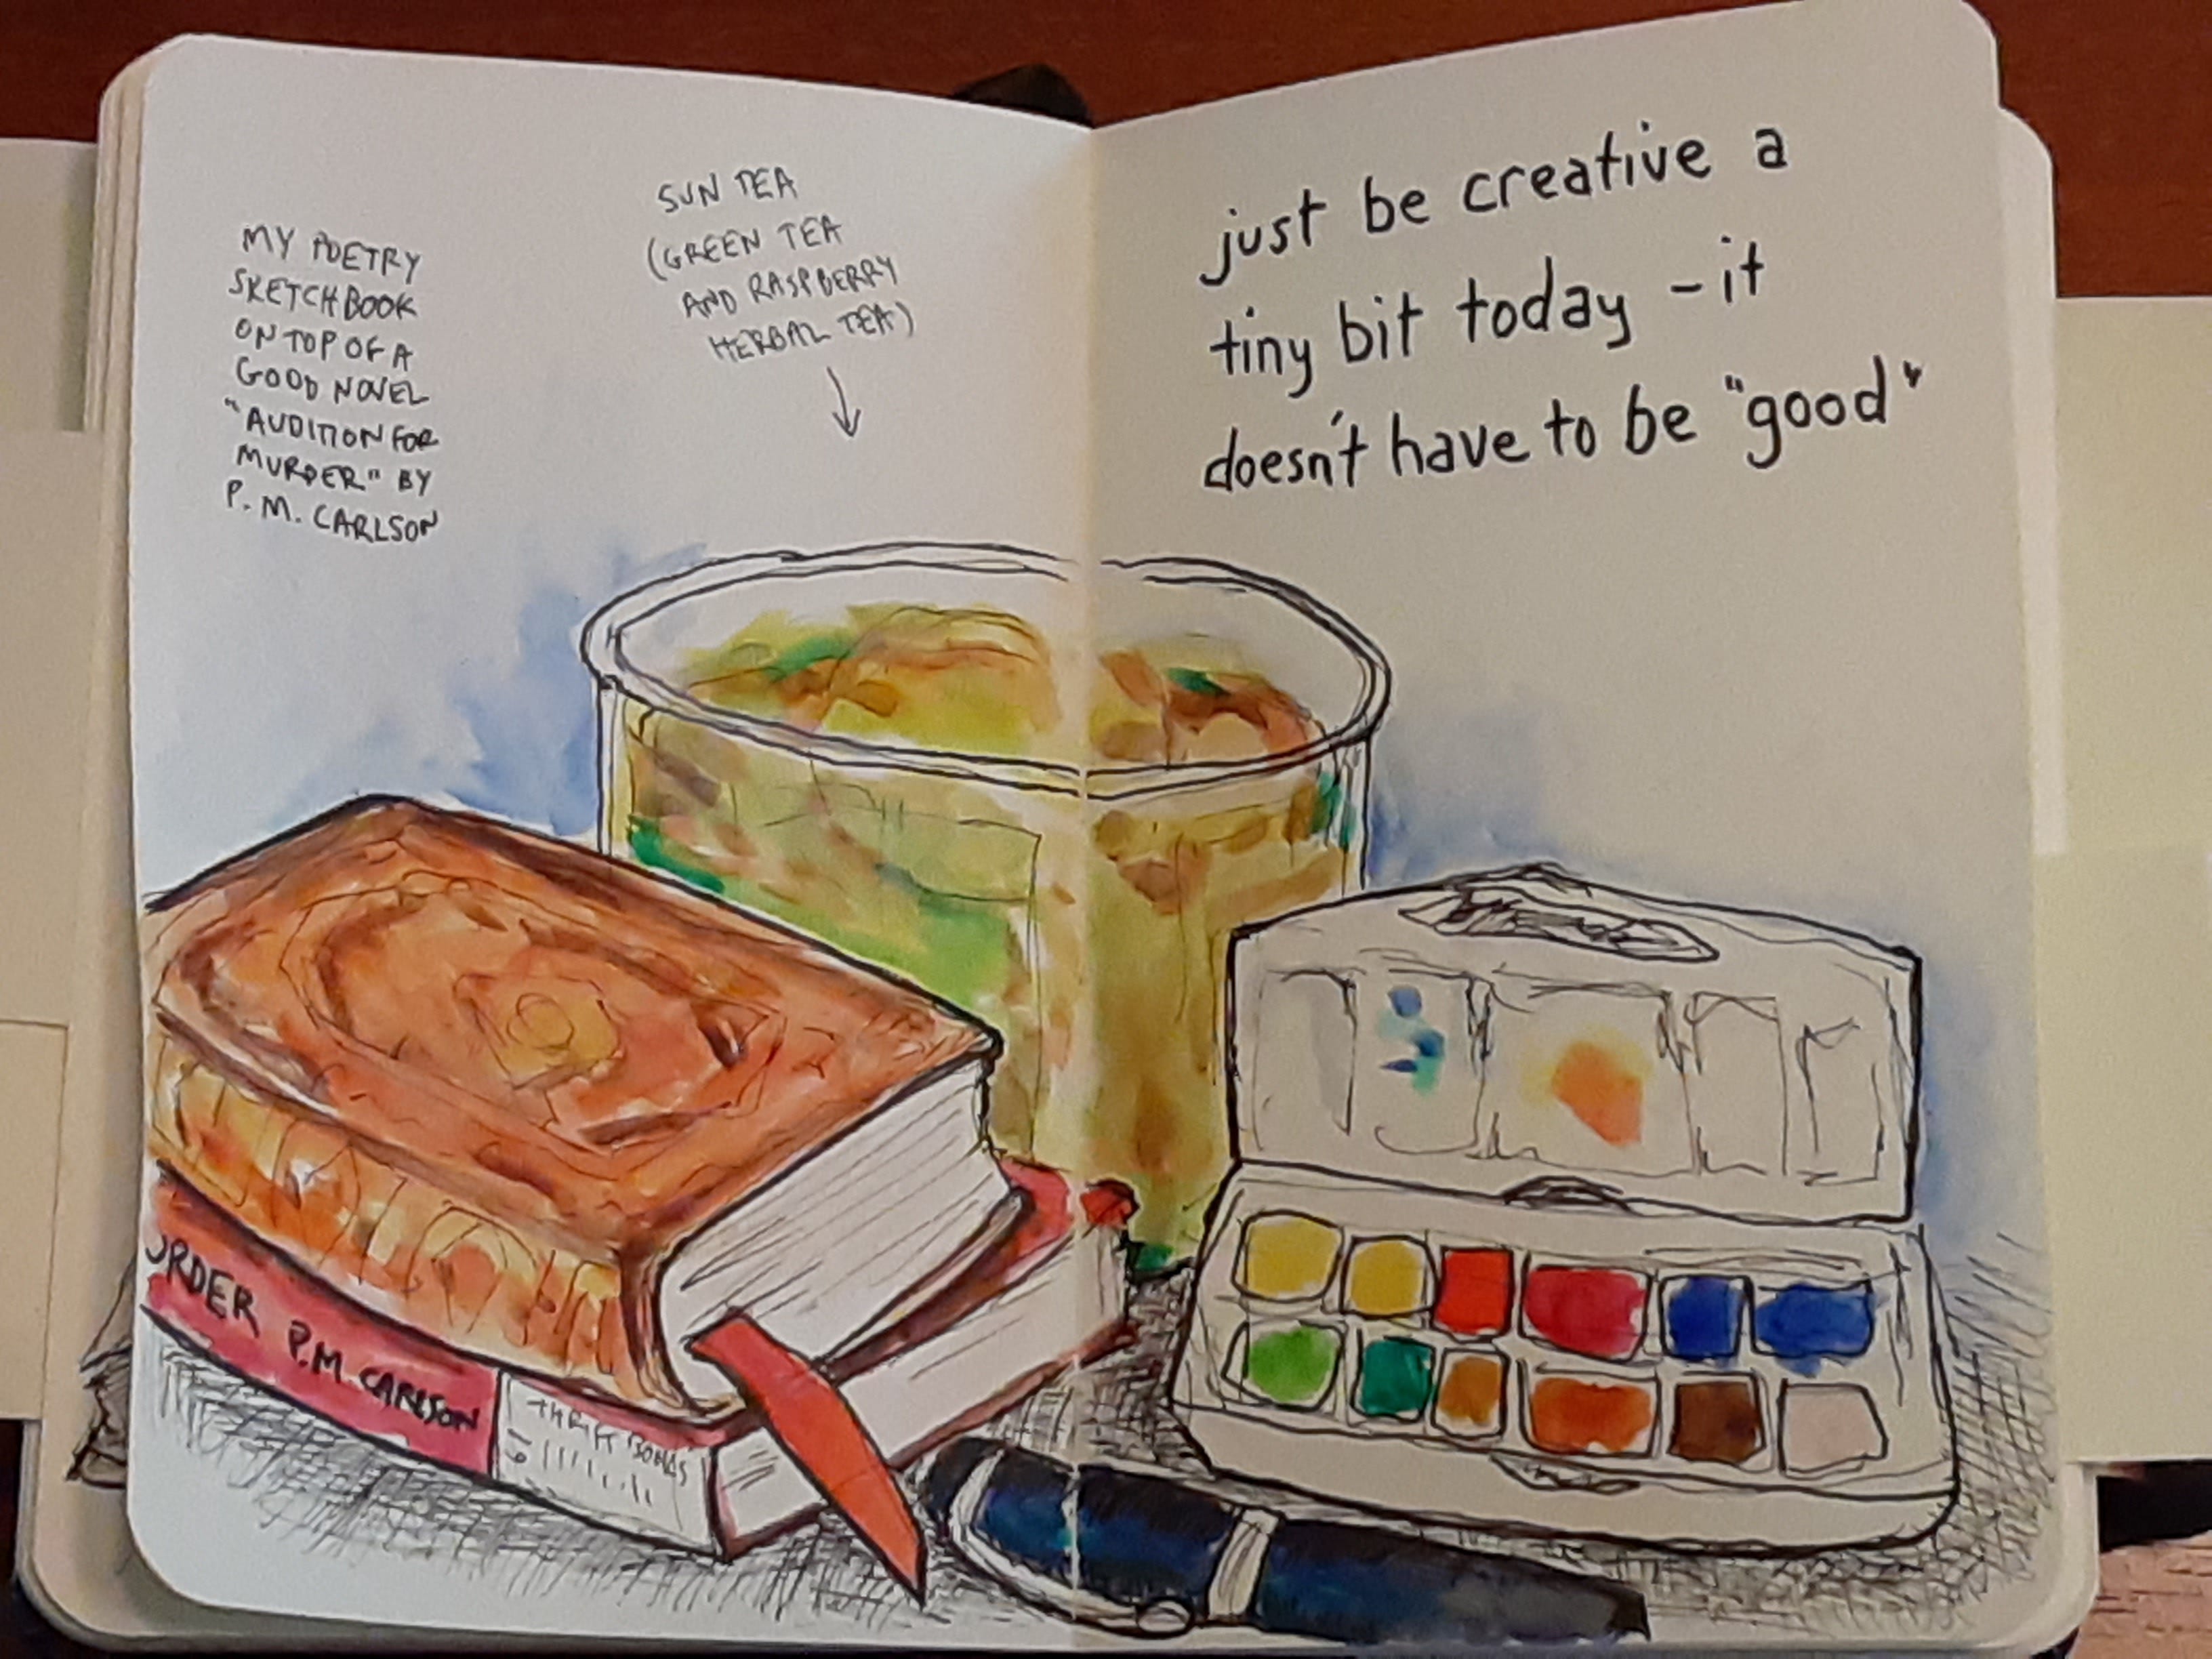 MY POETRY
SKETCHBOOK
ON TOP OF A
GOOD NOVEL
"AUDITION FOR
MURDER" BY
P. M. CARLSON
SUN TEA
(GREEN TEA
AND RASPBERRY
HERBAL TEA)
just be creative a
tiny bit today - it
doesn't have to be "good"
URDER P.M. CARLSON
THRIFT BOOKS